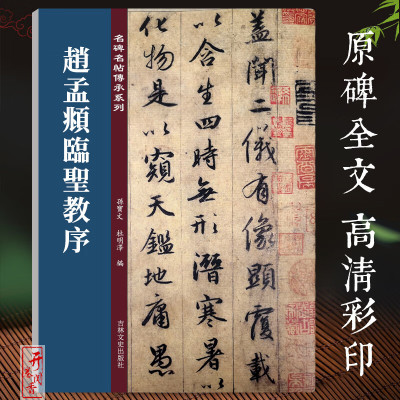 原碑全文 高清彩印
名碑名帖傳承系列
趙孟頫臨聖教序
孫寶文 杜明澤 編
吉林文史出版社
蓋聞二儀有像顯覆載
以含生四時無形潛寒暑以
化物是以窺天鑑地庸愚